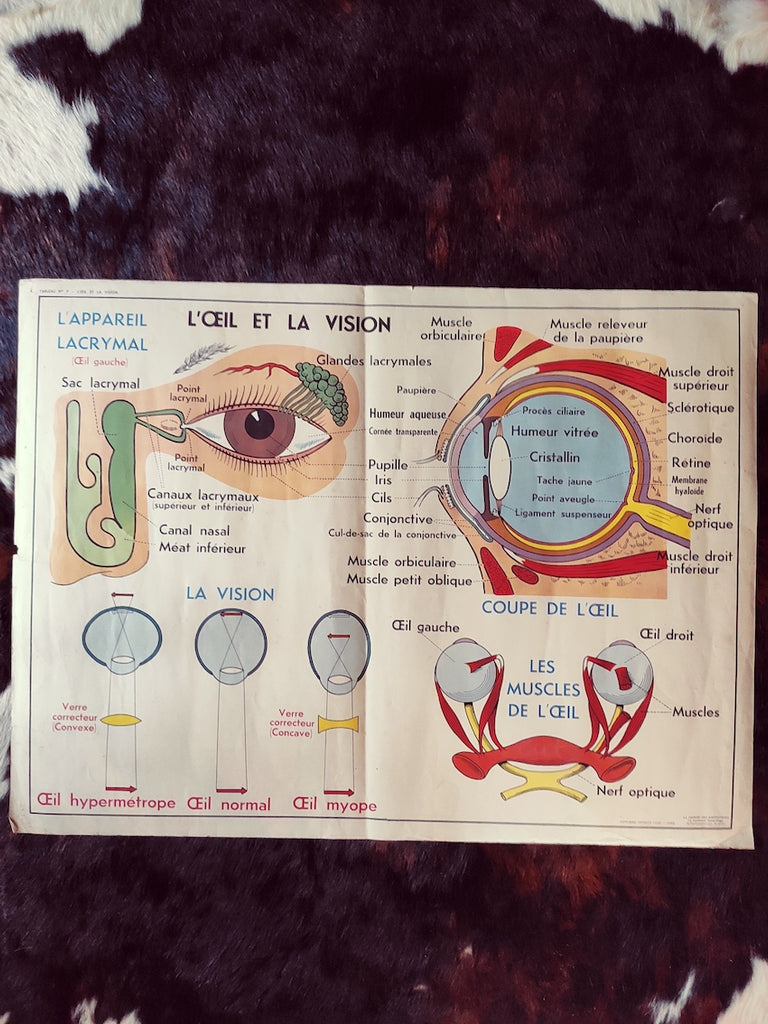 TABLEAU Nº 7 - L'ŒIL ET LA VISION
L'ŒIL ET LA VISION
L'APPAREIL
LACRYMAL
(Œil gauche)
Sac lacrymal
Point
lacrymal
Glandes lacrymales
Point
lacrymal
Canaux lacrymaux
(supérieur et inférieur)
Canal nasal
Méat inférieur
Muscle
orbiculaire
Muscle releveur
de la paupière
Paupière
Humeur aqueuse
Cornée transparente
Pupille
Iris
Cils
Conjonctive
Cul-de-sac de la conjonctive
Muscle orbiculaire
Muscle petit oblique
Procès ciliaire
Humeur vitrée
Cristallin
Tache jaune
Point aveugle
Ligament suspenseur
Muscle droit
supérieur
Sclérotique
Choroide
Rétine
Membrane
hyaloide
Nerf
optique
Muscle droit
inférieur
COUPE DE L'ŒIL
LA VISION
Verre
correcteur
(Convexe)
Verre
correcteur
(Concave)
Œil hypermétrope
Œil normal
Œil myope
Œil gauche
Œil droit
LES
MUSCLES
DE L'ŒIL
Muscles
Nerf optique